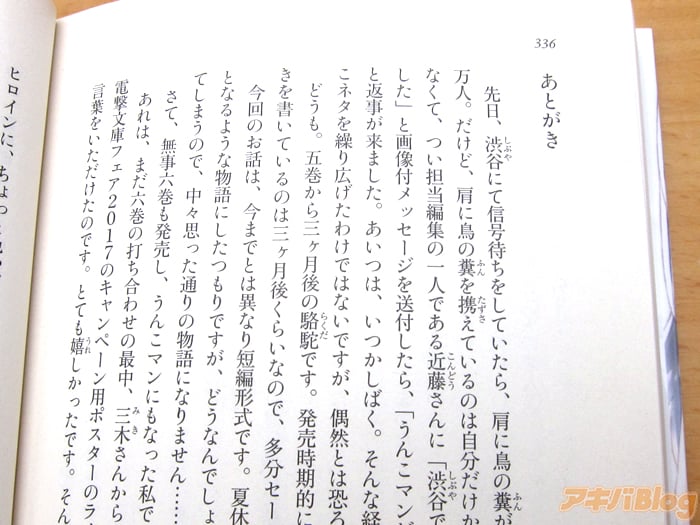 336
あとがき
先日、渋谷にて信号待ちをしていたら、肩に鳥の糞が
万人。だけど、肩に鳥の糞を携えているのは自分だけか
なくて、つい担当編集の一人である近藤さんに「渋谷で
した」と画像付メッセージを送付したら、「うんこマンど
と返事が来ました。あいつは、いつかしばく。そんな経
こネタを繰り広げたわけではないですが、偶然とは恐ろ
どうも。五巻から三ヶ月後の駱駝です。発売時期的に
きを書いているのは三ヶ月後くらいなので、多分セー
今回のお話は、今までとは異なり短編形式です。夏休
となるような物語にしたつもりですが、どうなんでしょ
てしまうので、中々思った通りの物語になりません……
さて、無事六巻も発売し、うんこマンにもなった私で
あれは、まだ六巻の打ち合わせの最中、三木さんから
電撃文庫フェア2017のキャンペーン用ポスターのラ
言葉をいただけたのです。とても嬉しかったです。そん
ヒロインに、ちょっと
アキバBlog